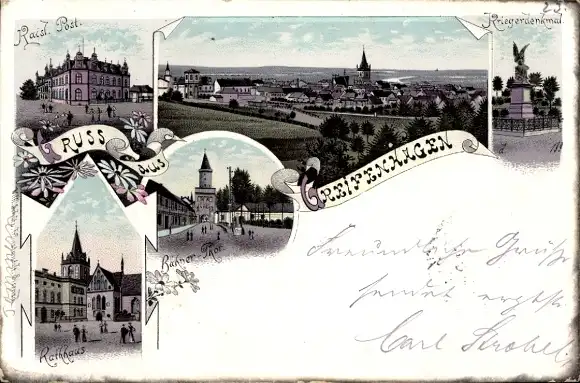 Kaisl. Post.
Kriegerdenkmal.
GRUSS
AUS
GREIFENHAGEN
Bahner Thor.
Rathhaus
Freundliche Grüße
sendet ergbst
Carl Strobel.